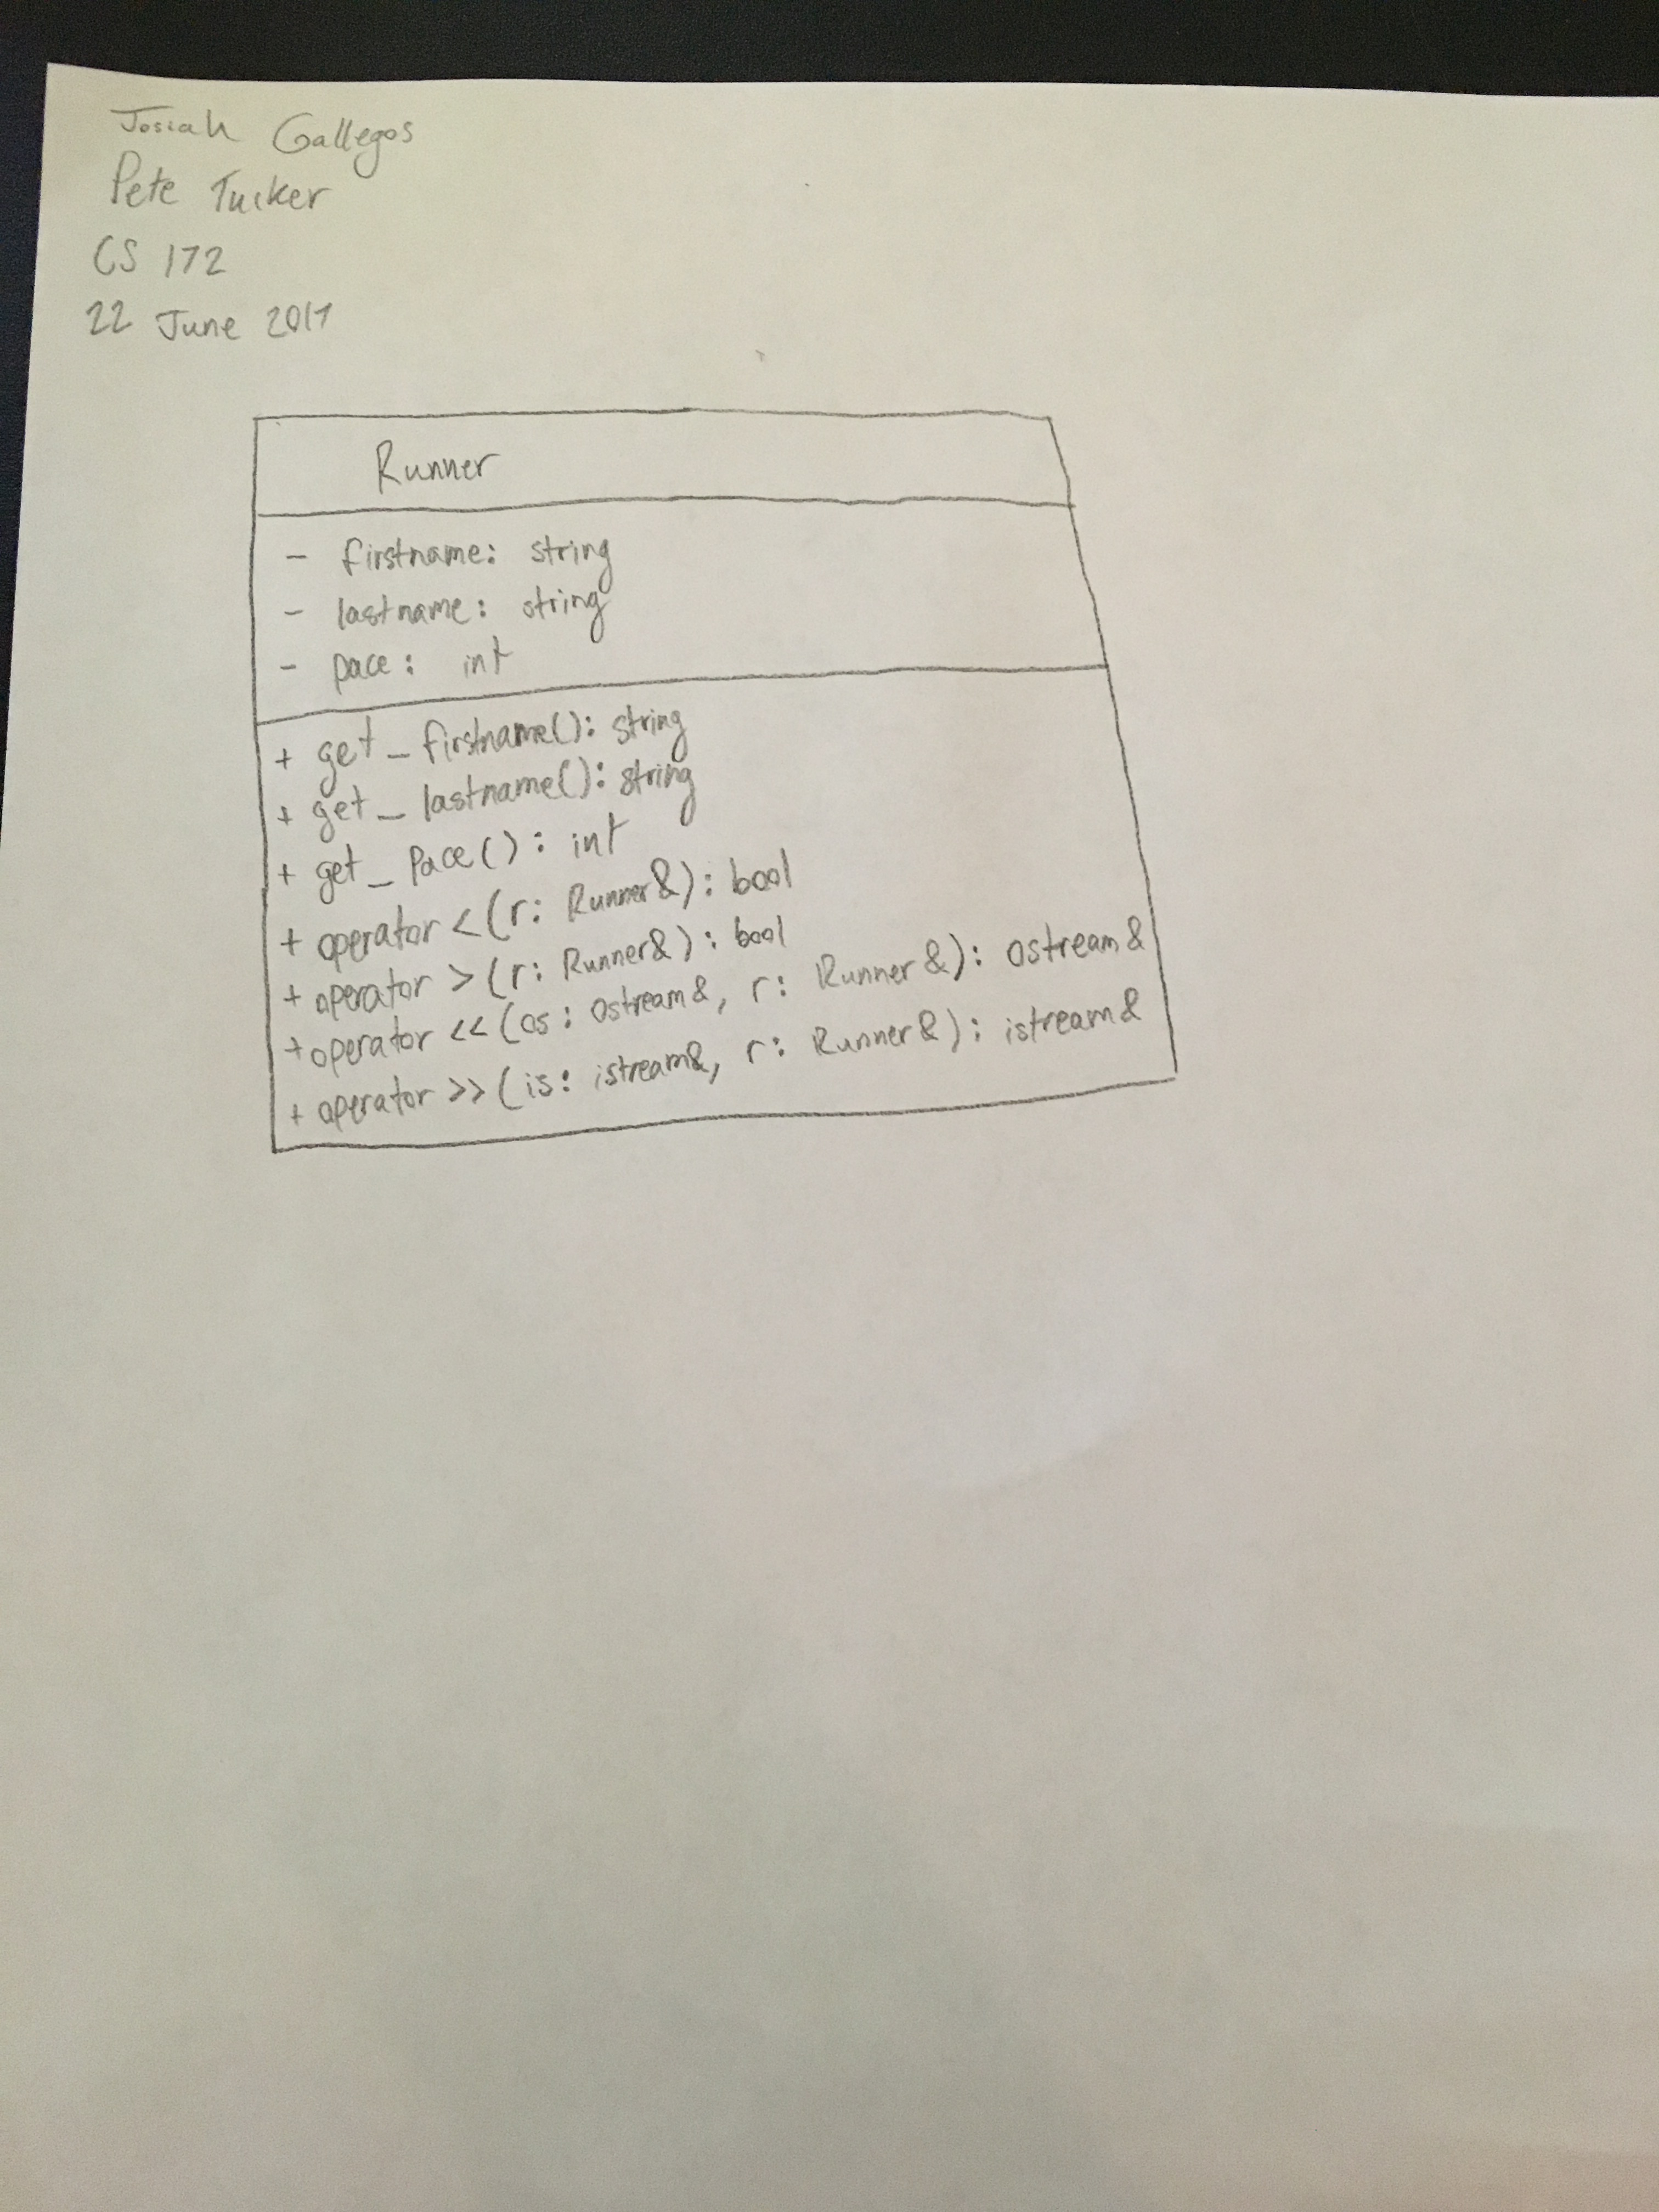 Josiah Gallegos
Pete Tucker
CS 172
22 June 2017
Runner
- firstname: string
- lastname: string
- pace: int
+ get_firstname(): string
+ get_lastname(): string
+ get_Pace(): int
+ operator <(r: Runner&): bool
+ operator >(r: Runner&): bool
+ operator <<(os: ostream&, r: Runner&): ostream&
+ operator >>(is: istream&, r: Runner&): istream&